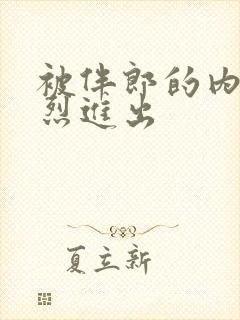 被伴郎的内
烈进出
夏立新